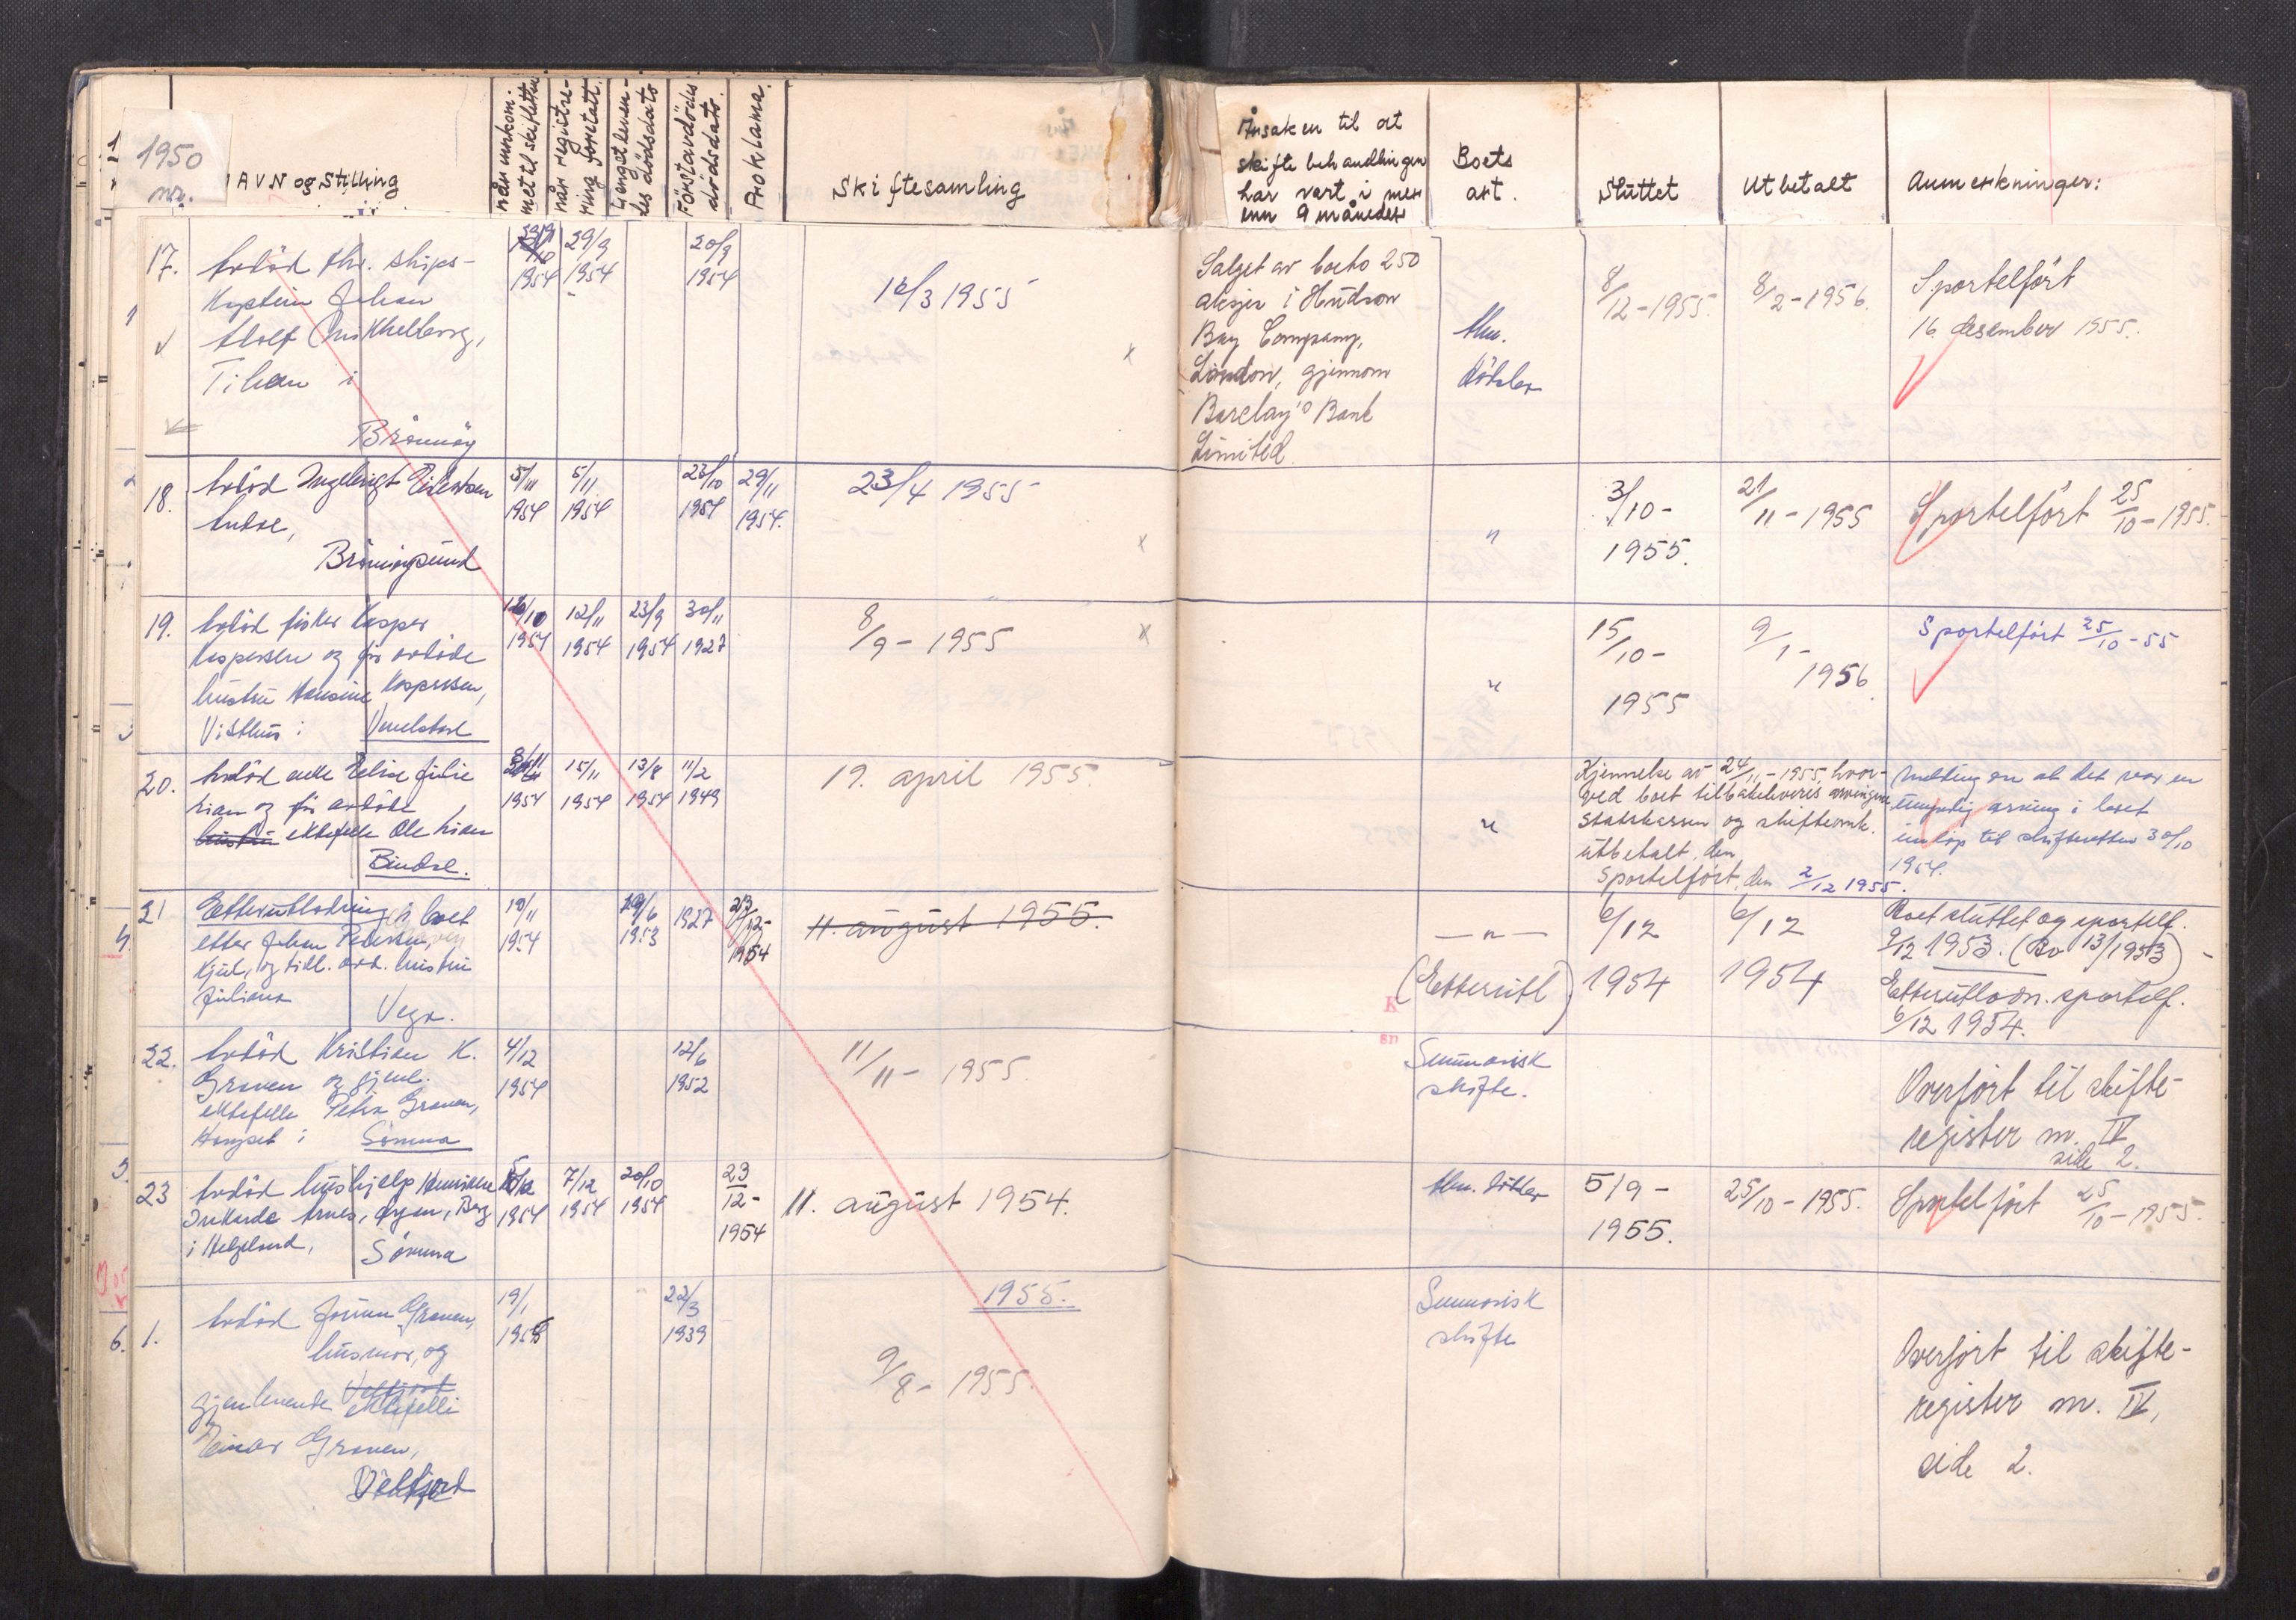 1950
nr.
NAVN og Stilling
når innkom-
met til skifteretten
når registre-
ring foretatt.
Lengstleven-
des dødsdato
Førstavdødes
dødsdato.
Proklama.
Skiftesamling
Årsaken til at
skiftebehandlingen
har vart i mer
enn 9 måneder
Boets
art.
Sluttet
Utbetalt
Anmerkninger:
17. Avdød fhv. skips-
kaptein Johan
Adolf Mikkelborg,
Tilrem i
Brønnøy
1954
29/9
1954
20/9
1954
12/3 1955
Salget av boets 250
aksjer i Hudson
Bay Company,
London, gjennom
Barclay's Bank
Limited.
Alm.
dödsbo
8/12-1955.
8/2-1956.
Sportelført
16 desember 1955.
18. Avdød Ingebrigt
Brønnøysund
5/11
1954
5/11
1954
23/10
1954
29/11
1954.
23/4 1955
"
3/10-
1955.
21/11-1955
Sportelfört 25/10-1955.
19. Avdød fisker Kasper
Kaspersen og før avdøde
hustru Hansine Kaspersen,
Visthus i Vevelstad
1954
12/11
1954
23/9
1954
30/11
1927
8/9-1955
"
15/10-
1955
9/1-
1956
Sportelfört 25/10-55
20. Avdød enke Elise Julie
og før avdøde
hustru ektefelle Ole
Bindal.
1954
15/11
1954
13/8
1954
11/2
1949
19. april 1955.
"
Kjennelse av 24/11-1955, hvor-
ved boet tilbakeleveris arvingene
Statskassen og skifteomk.
utbetalt, den
Sportelført, den 2/12 1955.
Melding om at det var en
umyndig arving i boet
innløp til skifteretten 30/10
1954.
21 Etterutlodning i boet
etter Johan Pedersen,
Kjul, og tidl. avd. hustru
Juliana
Vega.
10/11
1954
29/6
1953
1927
23/12-
1954
11. august 1955.
— " —
(Etterutl)
6/12
1954
6/12
1954
Boet sluttet og sportelf.
9/12 1953. (Bo 13/1953)
Etterutlodn. sportelf.
6/12 1954.
22. Avdød Kristian K.
Graven og gjenl.
ektefelle Petra Graven,
i Sömna
4/12
1954
12/6
1952
11/11-1955.
Summarisk
skifte.
Overført til skifte-
register nr. IV
side 2.
23 Avdød hushjelp Henrikke
Berg
i Helgeland, Sömna
1954
7/12
1954
20/10
1954
23
12-
1954
11. august 1954.
Alm. dödsbo
5/9-
1955.
25/10-1955.
Sportelfört 25/10-1955.
1955.
1. Avdød Jorunn Graven,
husmor, og
gjenlevende Velfjord
ektefelle
Einar Graven,
Velfjord
19/1
1955
22/3
1939
9/8-1955.
Summarisk
skifte
Overført til skifte-
register nr. IV,
side 2.